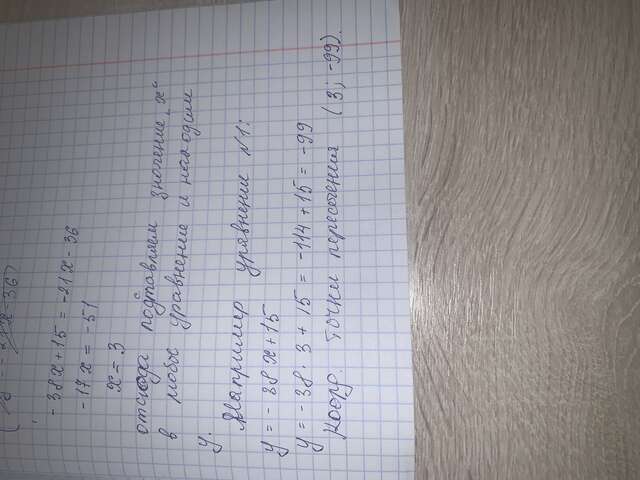 y = -21x-36
-38x+15 = -21x-36
-17x = -51
x = 3
отсюда подставляем значение „x“
в любое уравнение и находим
y.
Например уравнение №1:
y = -38x+15
y = -38·3+15 = -114+15 = -99
Коорд. точки пересечения (3; -99).